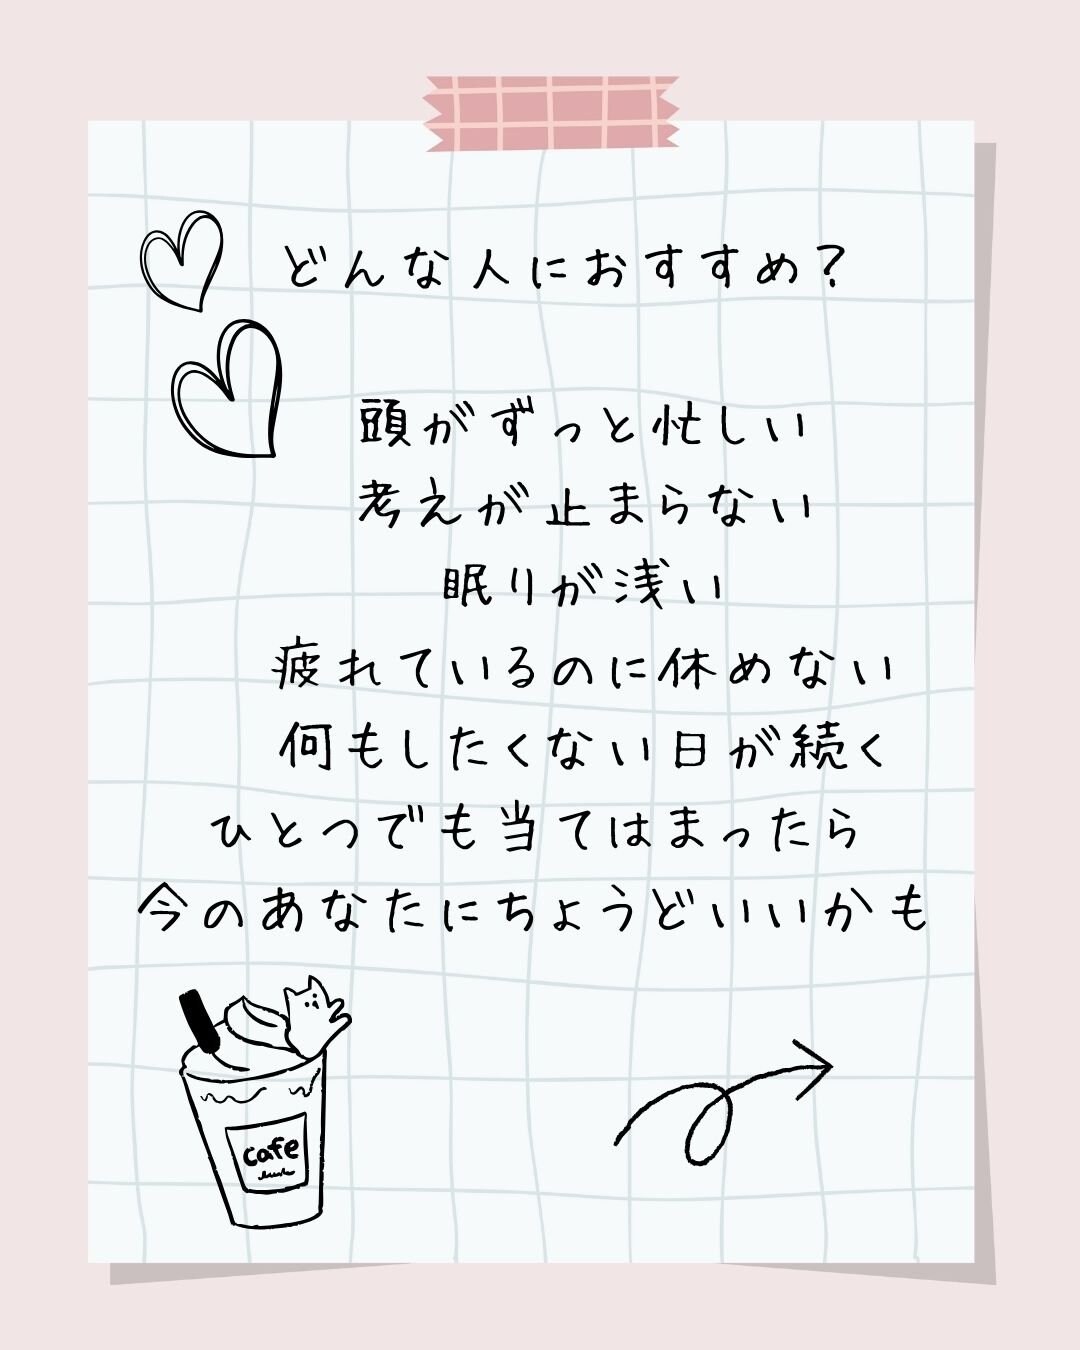 どんな人におすすめ？
頭がずっと忙しい
考えが止まらない
眠りが浅い
疲れているのに休めない
何もしたくない日が続く
ひとつでも当てはまったら
今のあなたにちょうどいいかも
cafe